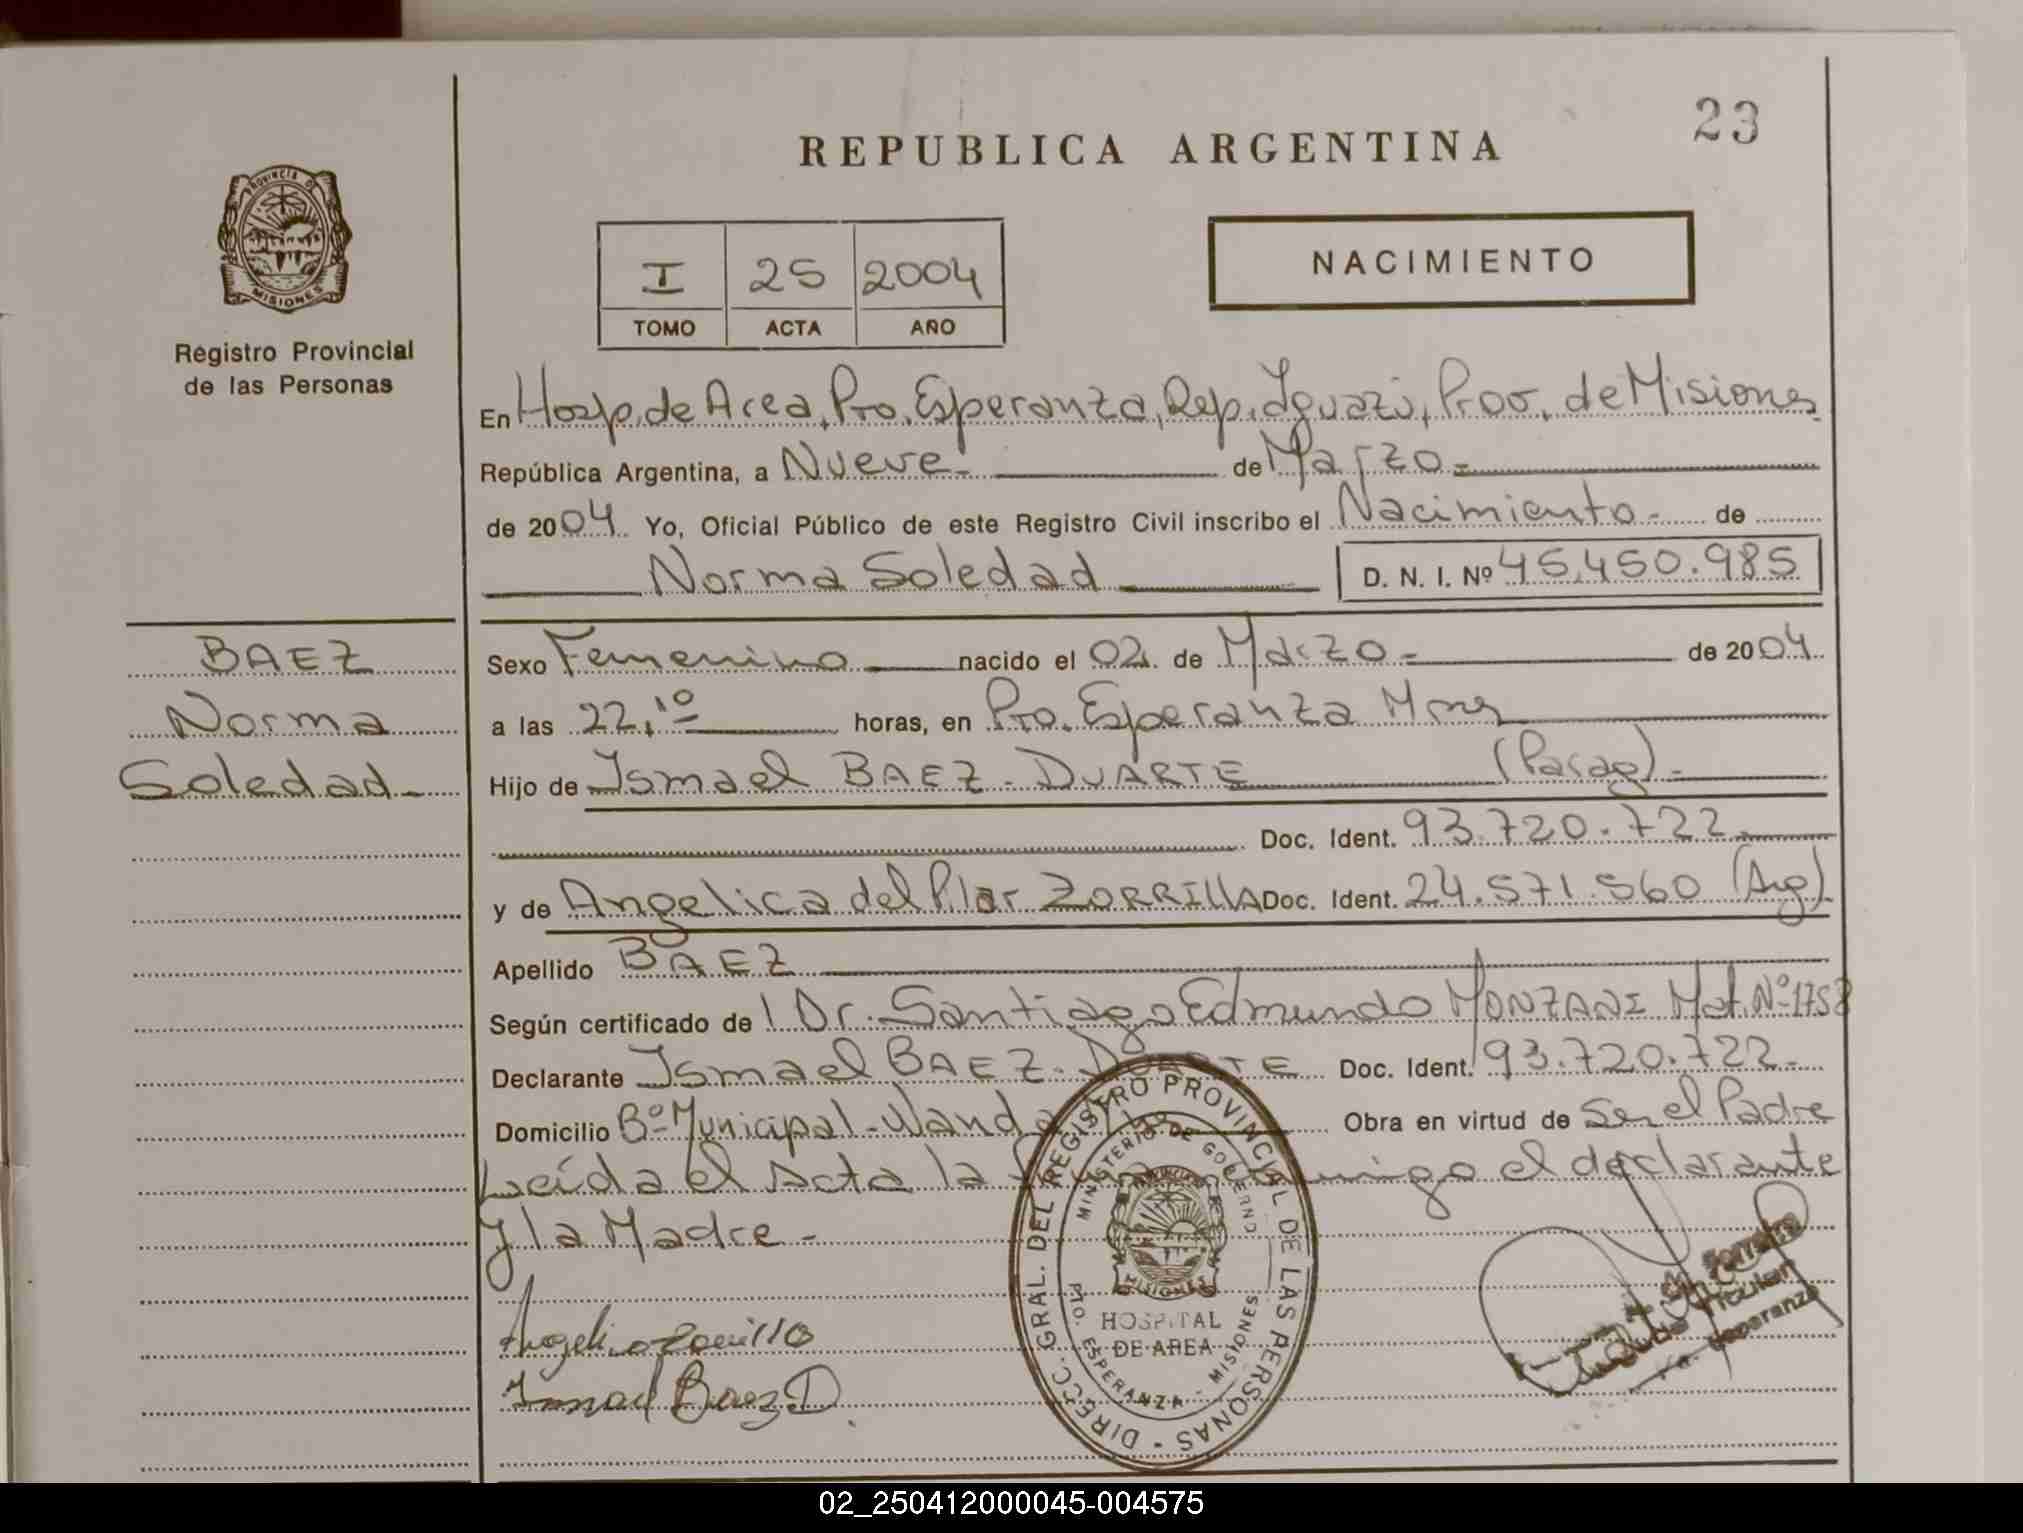 23
REPUBLICA ARGENTINA
PROVINCIA DE
MISIONES
Registro Provincial
de las Personas
I 25 2004
TOMO ACTA AÑO
NACIMIENTO
En Hosp. de Area, Pto. Esperanza, Dep. Iguazú, Prov. de Misiones
República Argentina, a Nueve.- de Marzo.-
de 2004. Yo, Oficial Público de este Registro Civil inscribo el Nacimiento.- de
Norma Soledad D. N. I. Nº 45.450.985
BAEZ
Norma
Soledad.-
Sexo Femenino nacido el 02. de Marzo.- de 2004.
a las 22,10 horas, en Pto. Esperanza Mnes
Hijo de Ismael BAEZ - DUARTE (Parag).-
Doc. Ident. 93.720.722.-
y de Angelica del Pilar ZORRILLA Doc. Ident. 24.571.560 (Arg)
Apellido BAEZ
Según certificado de l Dr. Santiago Edmundo MONZANI Mat. Nº 1758
Declarante Ismael BAEZ - DUARTE Doc. Ident. 93.720.722.-
Domicilio Bº Municipal - Wanda Obra en virtud de Ser el Padre
Leída el Acta la el declarante
y la Madre -
Angelica Zorrilla
Ismael Baez D.
DIRECC. GRAL. DEL REGISTRO PROVINCIAL DE LAS PERSONAS -
MINISTERIO DE GOBIERNO
MISIONES
HOSPITAL
DE AREA
PTO. ESPERANZA - MISIONES
Esperanza
02_250412000045-004575